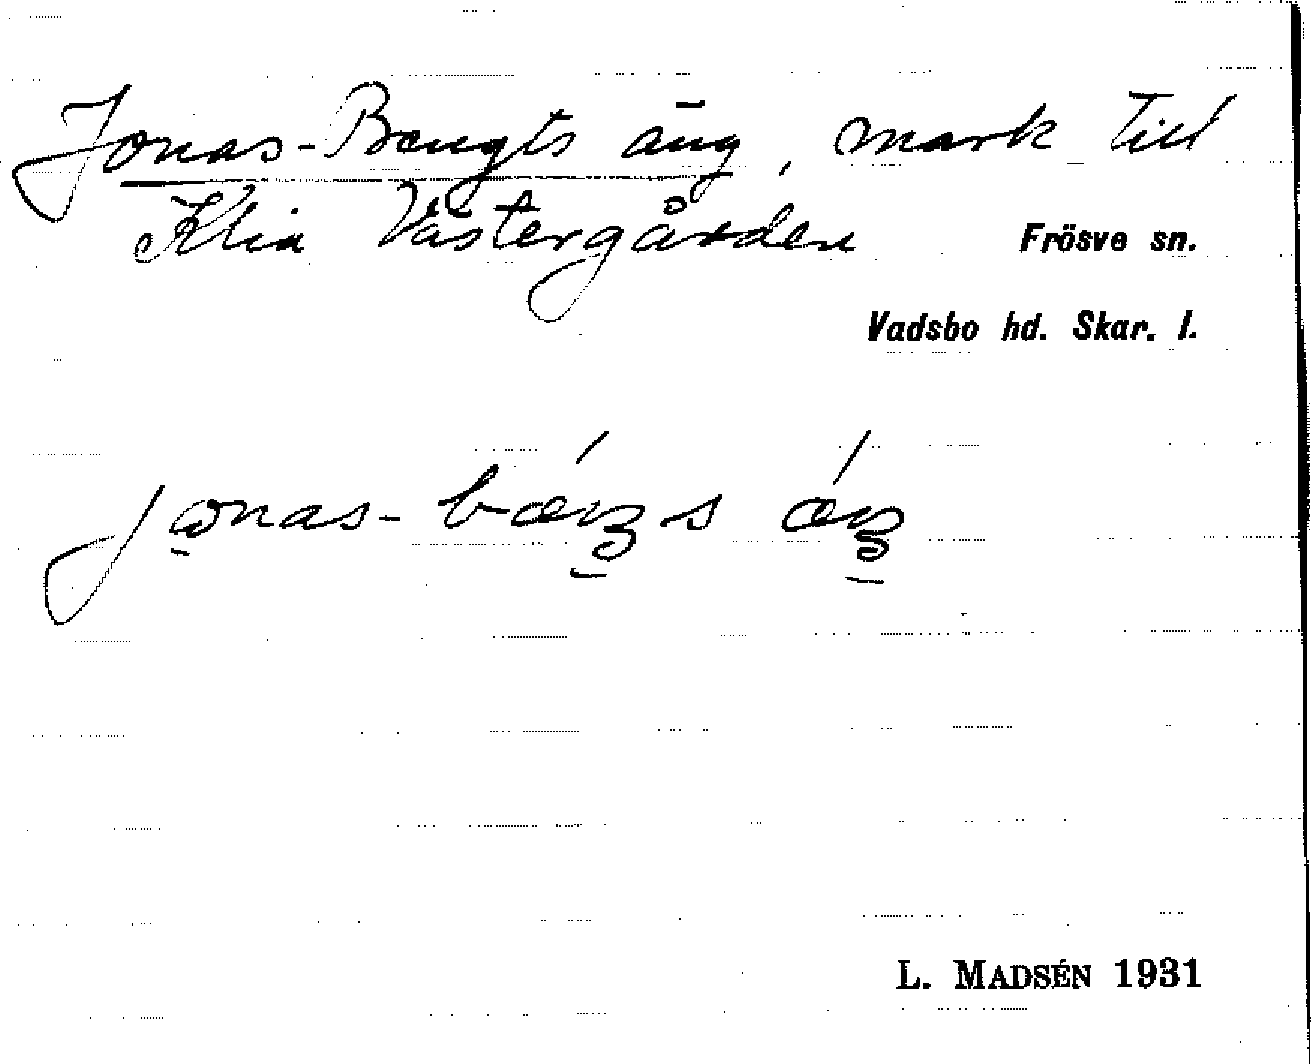 Jonas-Bengts äng, mark till
Klia Västergården Frösve sn.
Vadsbo hd. Skar. l.
L. MADSÉN 1931